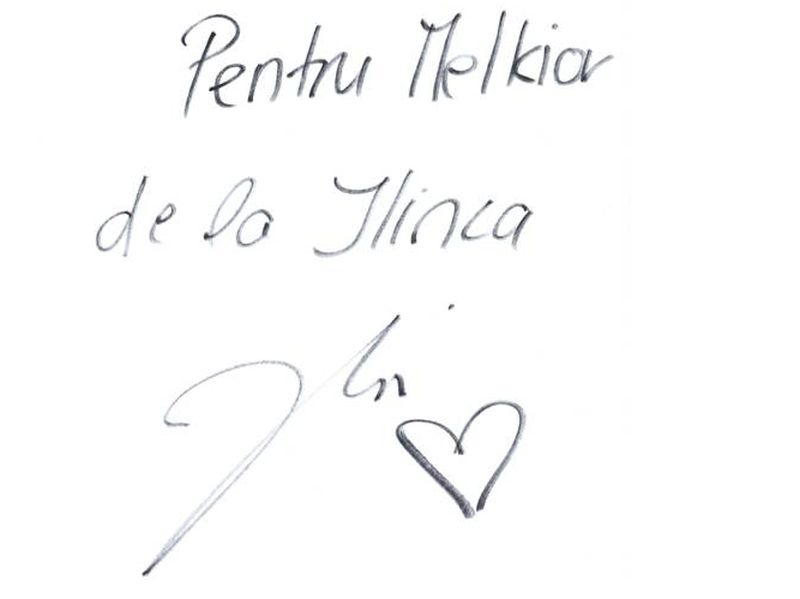 Pentru Melkior
de la Ilinca